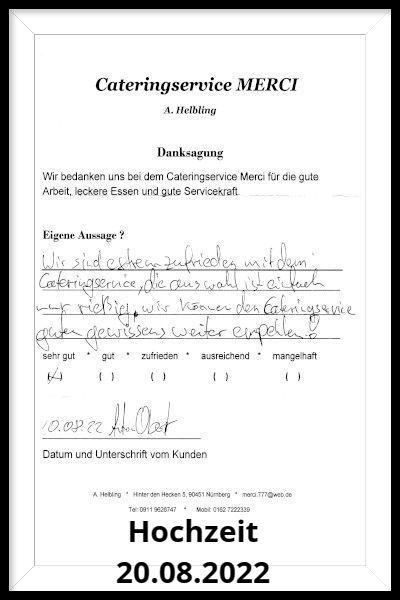 Cateringservice MERCI
A. Helbling
Danksagung
Wir bedanken uns bei dem Cateringservice Merci für die gute
Arbeit, leckere Essen und gute Servicekraft.
Eigene Aussage ?
Wir sind extrem zufrieden mit dem
Cateringservice, die auswahl ist einfach
nur rießig, wir können den Cateringservice
guten gewissens weiter empehlen!
sehr gut * gut * zufrieden * ausreichend * mangelhaft
(X) ( ) ( ) ( ) ( )
10.08.22
Datum und Unterschrift vom Kunden
A. Helbling * Hinter den Hecken 5, 90451 Nürnberg * merci.777@web.de
Tel: 0911 9626747 * Mobil: 0162 7222339
Hochzeit
20.08.2022